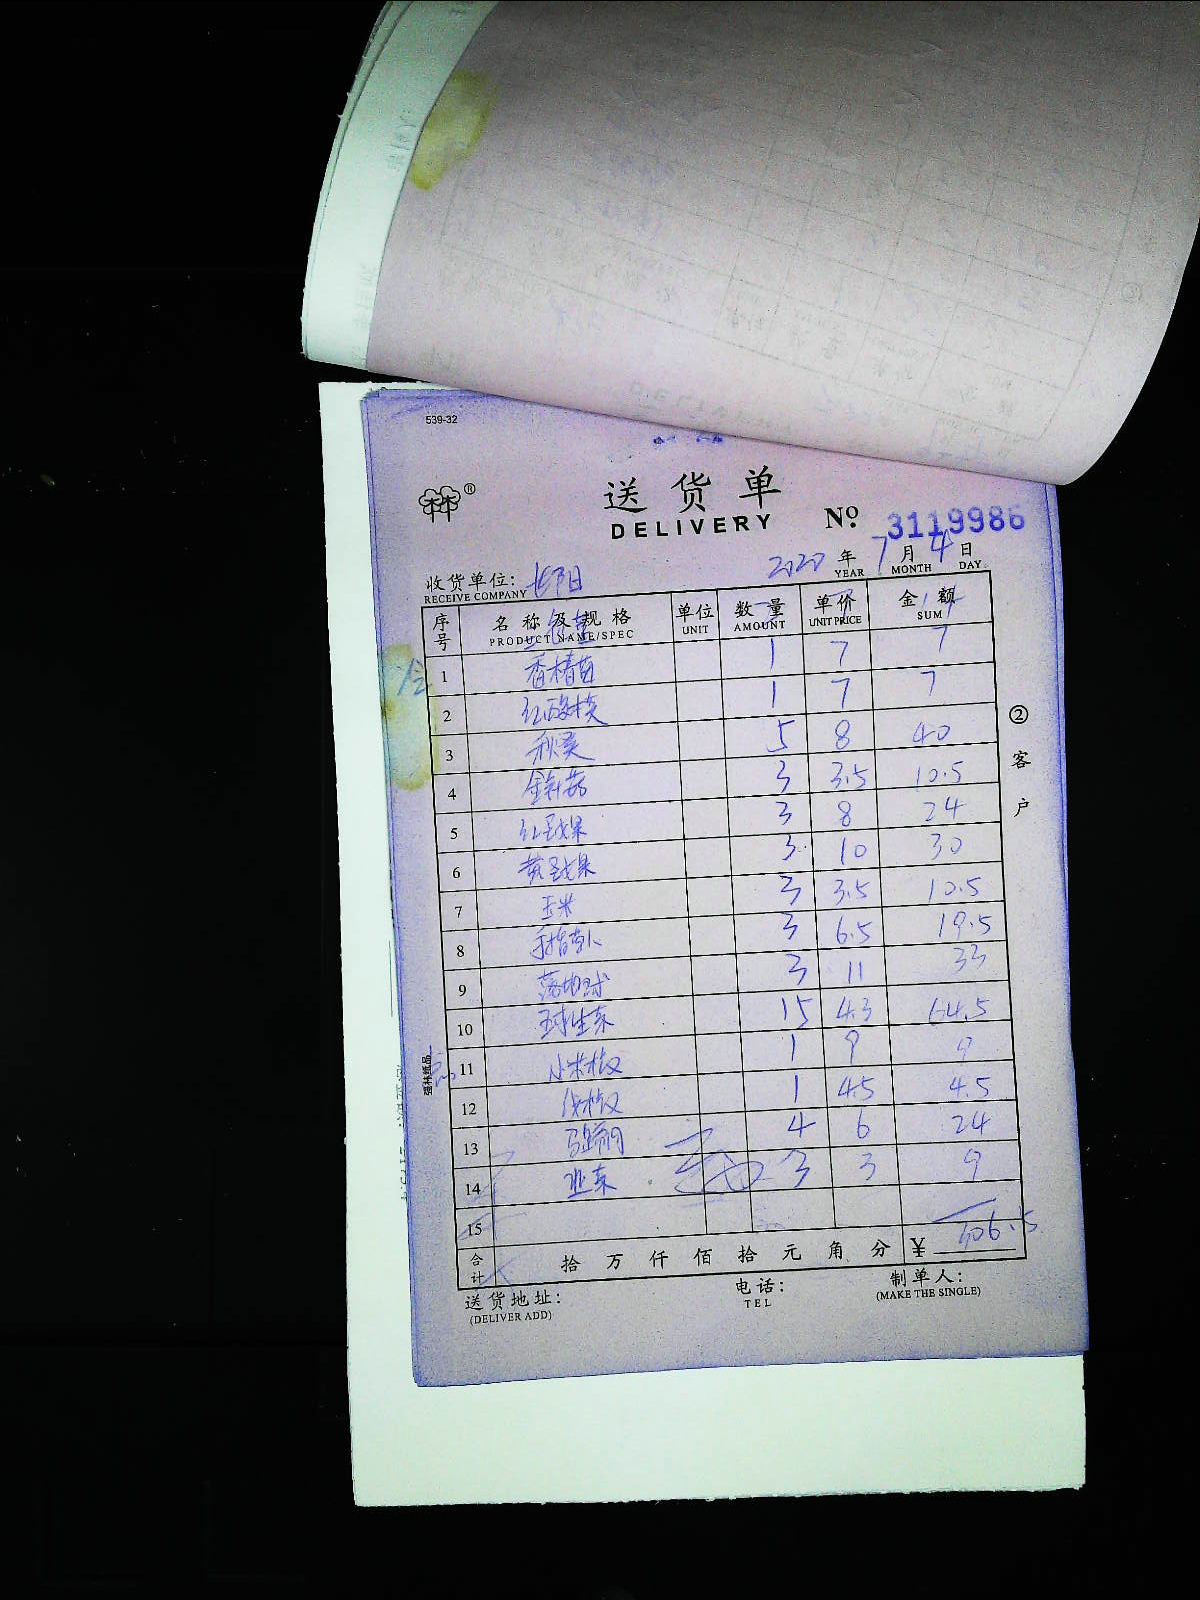 539-32
送货单
DELIVERY № 3119986
2020 年 7 月 4 日
YEAR MONTH DAY
收货单位:
RECEIVE COMPANY
序号 名称及规格 单位 数量 单价 金额
PRODUCT NAME/SPEC UNIT AMOUNT UNIT PRICE SUM
1 香椿苗 1 7 7
2 红酸模 1 7 7
3 秋葵 5 8 40
4 金针菇 3 3.5 10.5
5 红圣女果 3 8 24
6 黄圣女果 3 10 30
7 玉米 3 3.5 10.5
8 手指萝卜 3 6.5 19.5
9 3 11 33
10 球生菜 15 4.3 64.5
11 1 9 9
12 1 4.5 4.5
13 马蹄 4 6 24
14 韭菜 3 3 9
15
合计 拾 万 仟 佰 拾 元 角 分 ¥ 306.5
送货地址: 电话: 制单人:
(DELIVER ADD) TEL (MAKE THE SINGLE)
② 客户
强林纸品